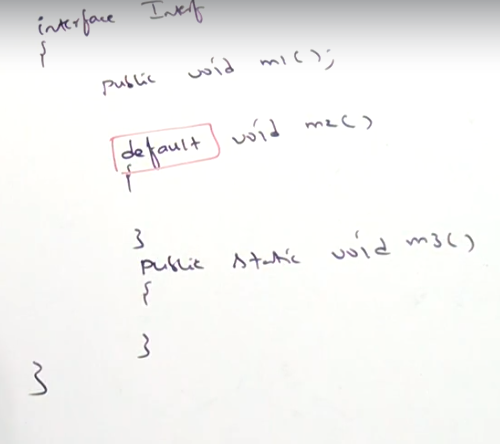 interface Interf
{
public void m1();
default void m2()
{
}
public static void m3()
{
}
}